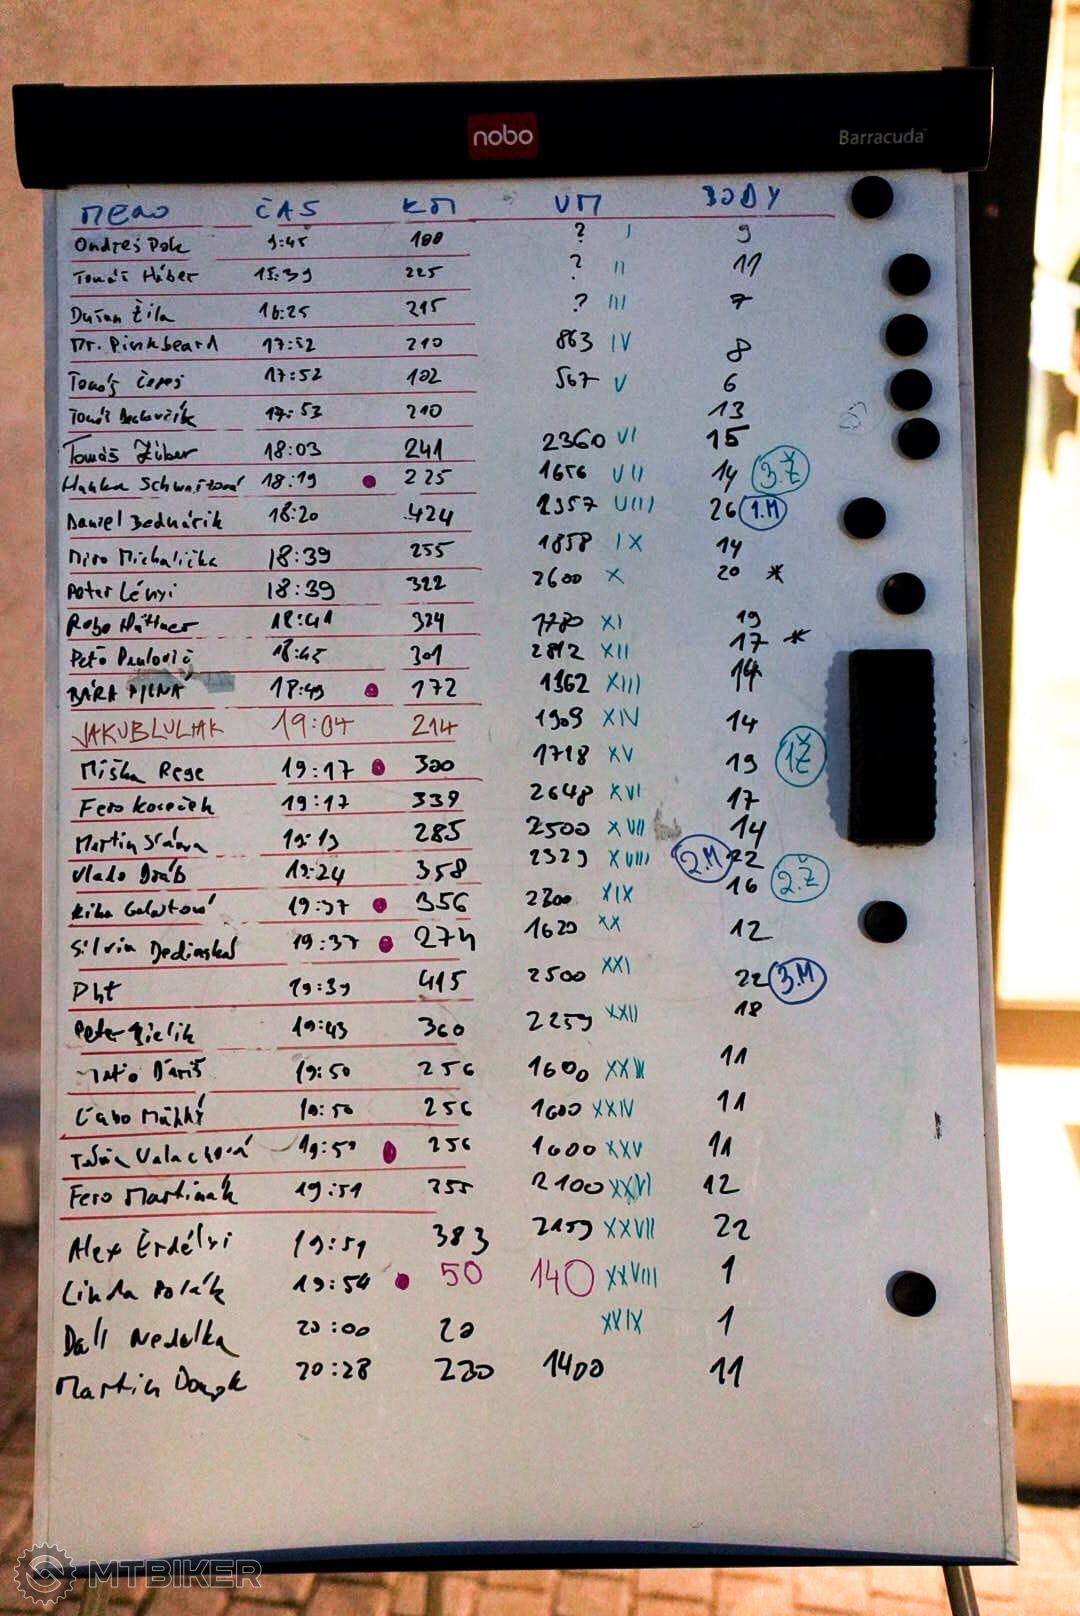 nobo
Barracuda
MENO ČAS KM VM BODY
Ondrej 9:45 100 ? I 9
Tomáš Háber 15:39 225 ? II 11
Dušan Žila 16:25 215 ? III 7
Mr. Pinkbeard 17:52 210 863 IV 8
Tomáš 17:52 102 567 V 6
Tomáš 17:53 210 13
Tomáš Žiber 18:03 241 2360 VI 15
Hanka Schwarzová 18:19 225 1656 VII 14 3.Ž
Daniel Bednárik 18:20 424 2357 VIII 26 1.M
Miro Michalička 18:39 255 1858 IX 14
Peter Lényi 18:39 322 2600 X 20 *
Robo Hüttner 18:41 324 1780 XI 19
Peťo Pavlovič 18:45 301 2812 XII 17 *
BÁRA PILNÁ 18:49 172 1362 XIII 14
JAKUB LULIAK 19:04 214 1909 XIV 14
Miška Rege 19:17 300 1718 XV 19 1Ž
Fero Koreček 19:17 339 2648 XVI 17
Martin 19:19 285 2500 XVII 14
Vlado Dráb 19:24 358 2329 XVIII 2.M 22
Kika 19:37 356 2200 XIX 16 2.Ž
Silvia 19:37 274 1620 XX 12
Pht 19:39 415 2500 XXI 22 3.M
Peter Bielik 19:43 360 2259 XXII 18
Ďuriš 19:50 256 1600 XXIII 11
19:50 256 1600 XXIV 11
Valachová 19:50 256 1600 XXV 11
Fero Martinák 19:51 255 2100 XXVI 12
Alex Erdélyi 19:51 383 2159 XXVII 22
Linda Polák 19:54 50 140 XXVIII 1
Dalí Nedelka 20:00 20 XVIX 1
Martin 20:28 230 1400 11
MTBIKER